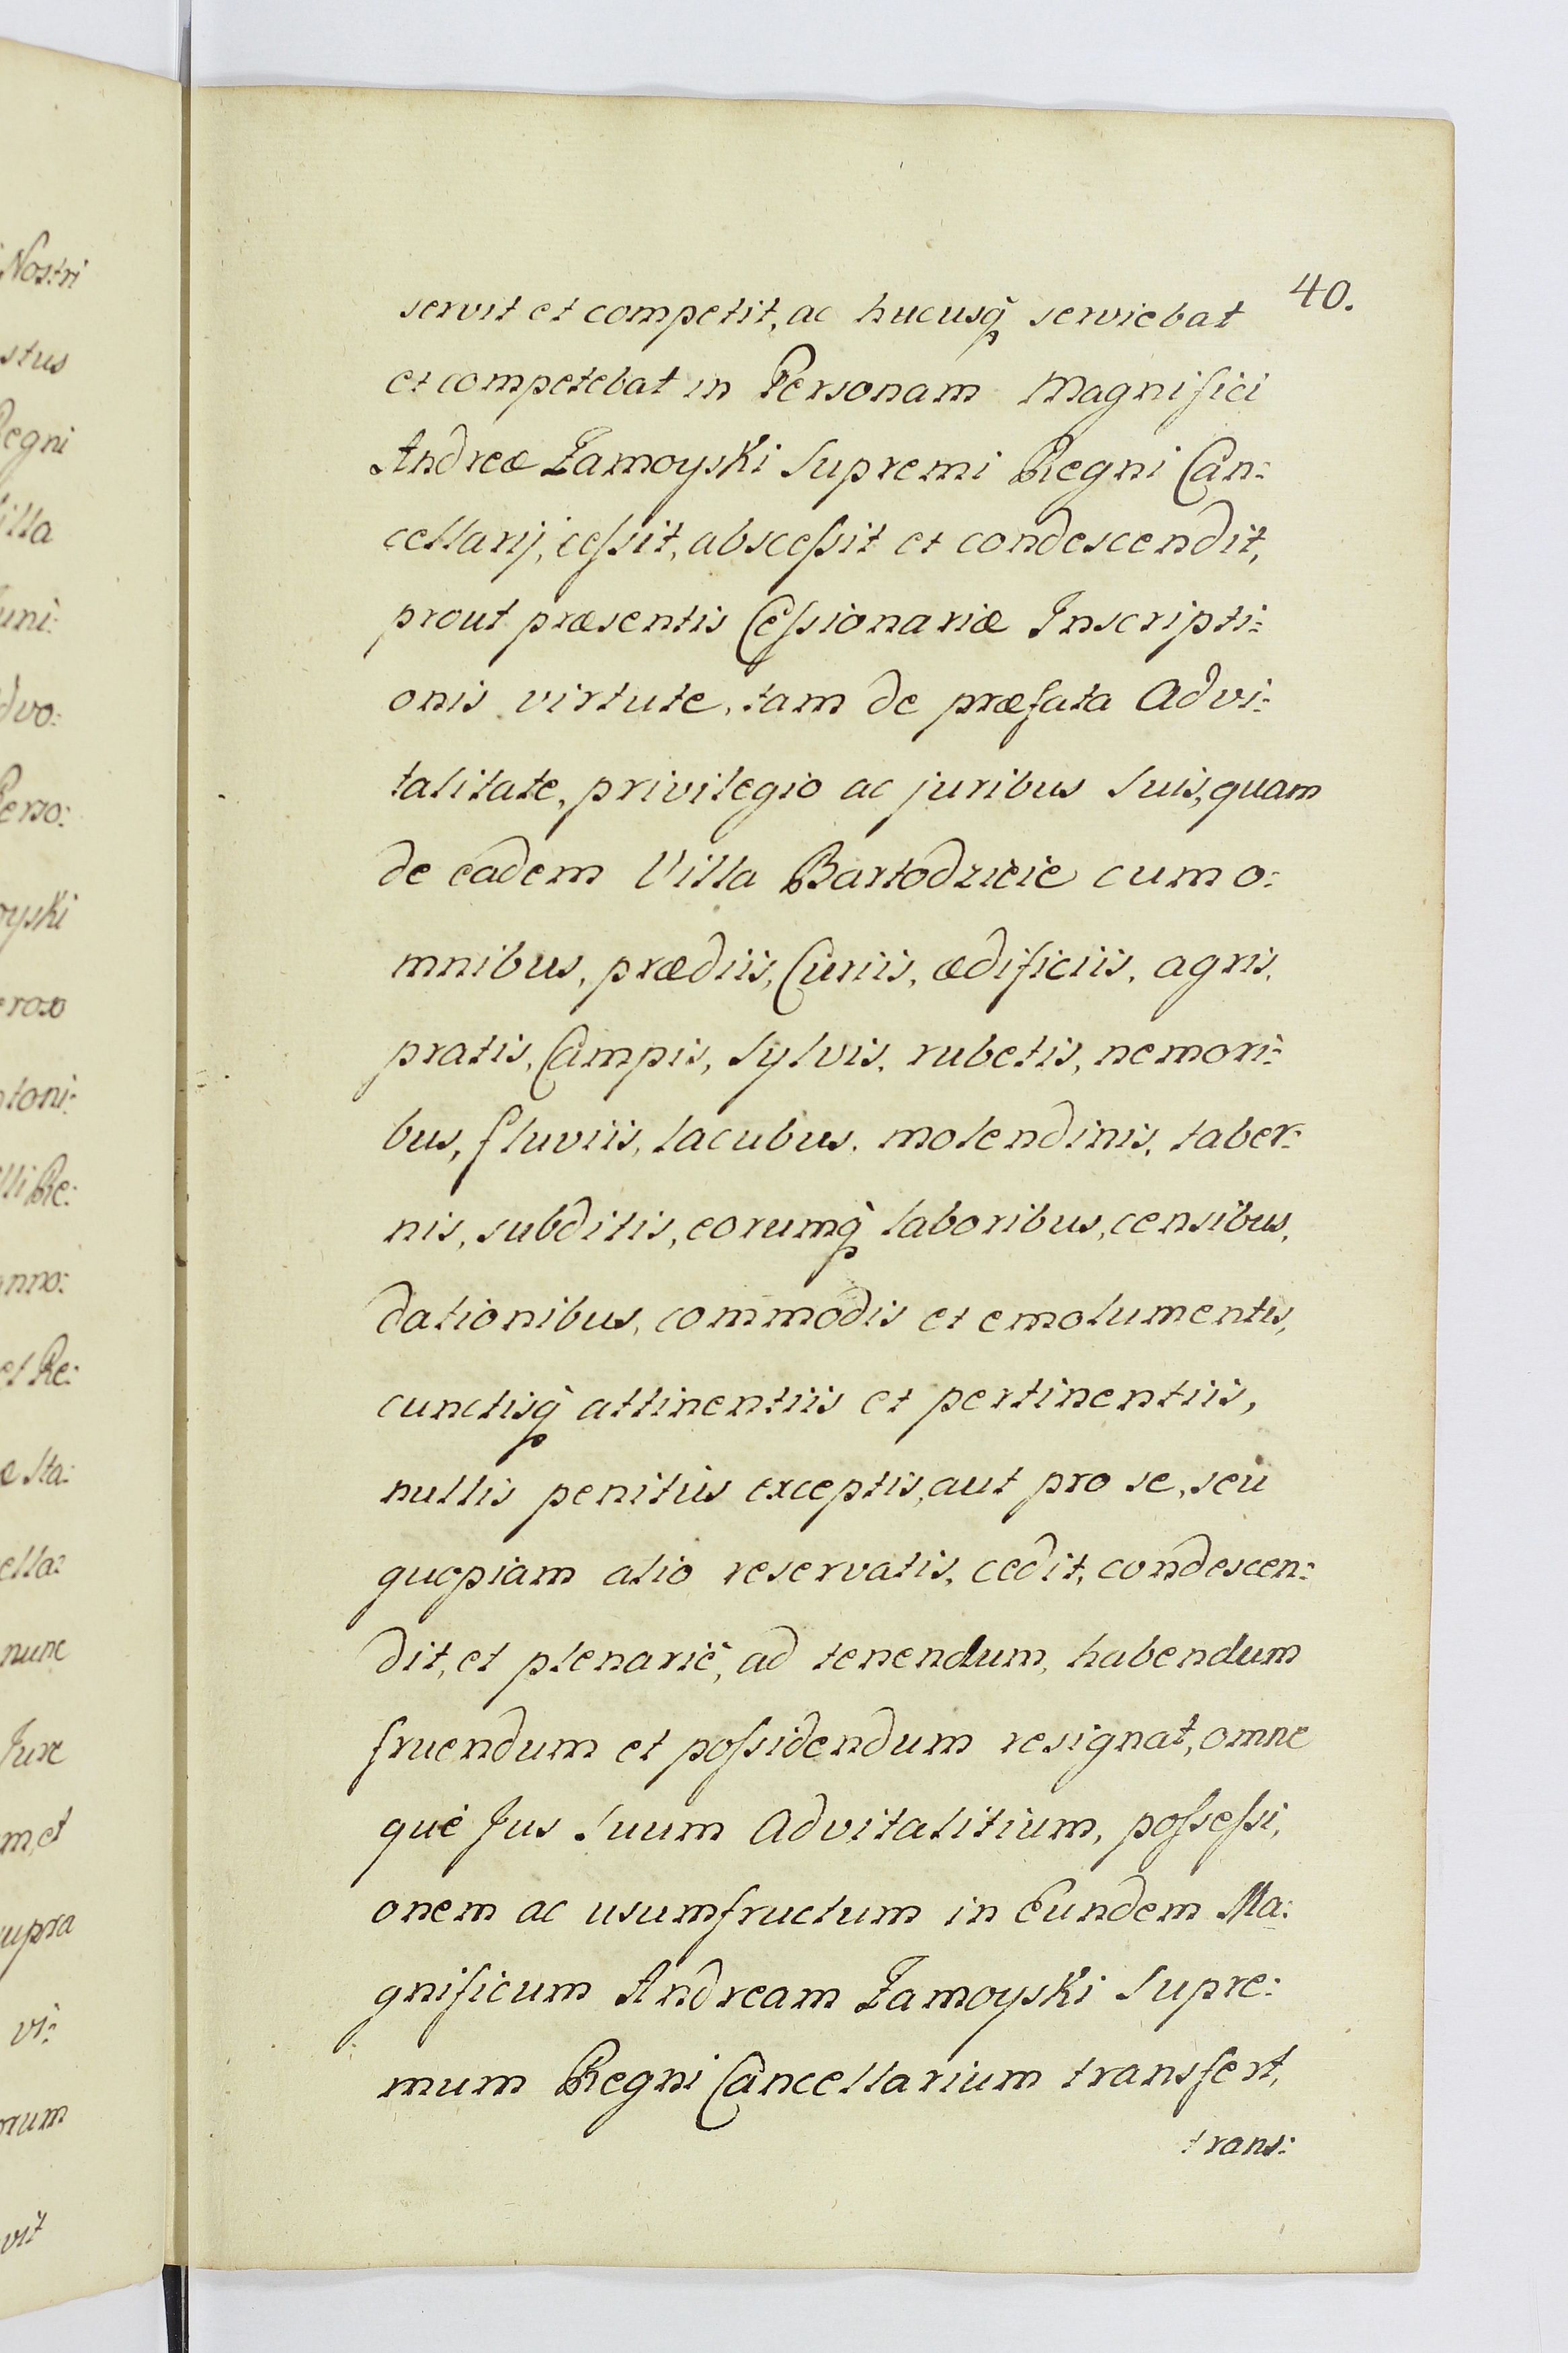 40.
servit et competit, ac hucusq̃ serviebat
et competebat in Personam Magnifici
Andreæ Zamoyski Supremi Regni Can:
cellarij, ceſsit, absceſsit et condescendit,
prout præsentis Ceſsionariæ Inscripti:
onis virtute, tam de præfata Advi:
talitate, privilegio ac juribus Suis, quam
de eadem Villa Bartodzieie cum o:
mnibus, prædiis, Curiis, ædificiis, agris,
pratis, Campis, Sylvis, rubetis, nemori:
bus, fluviis, lacubus, molendinis, taber:
nis, subditis, eorumq̃ laboribus, censibus,
dationibus, commodis et emolumentis,
cunctisq̃ attinentiis et pertinentiis,
nullis penitùs exceptis, aut pro se, seu
quopiam alio reservatis, cedit, condescen:
dit, et plenariè, ad tenendum, habendum
fruendum et poſsidendum resignat, omne
què Jus Suum Advitalitium, poſseſsi,
onem ac usumfructum in Eundem Ma:
gnificum Andream Zamoyski Supre:
mum Regni Cancellarium transfert,
trans:
Nostri
stus
Regni
illa
uni:
dvo:
Perso:
oyski
toni:
lli Re:
nno:
et Re:
æ Sta:
cella:
nunc
Jure
m, et
supra
vi:
vit